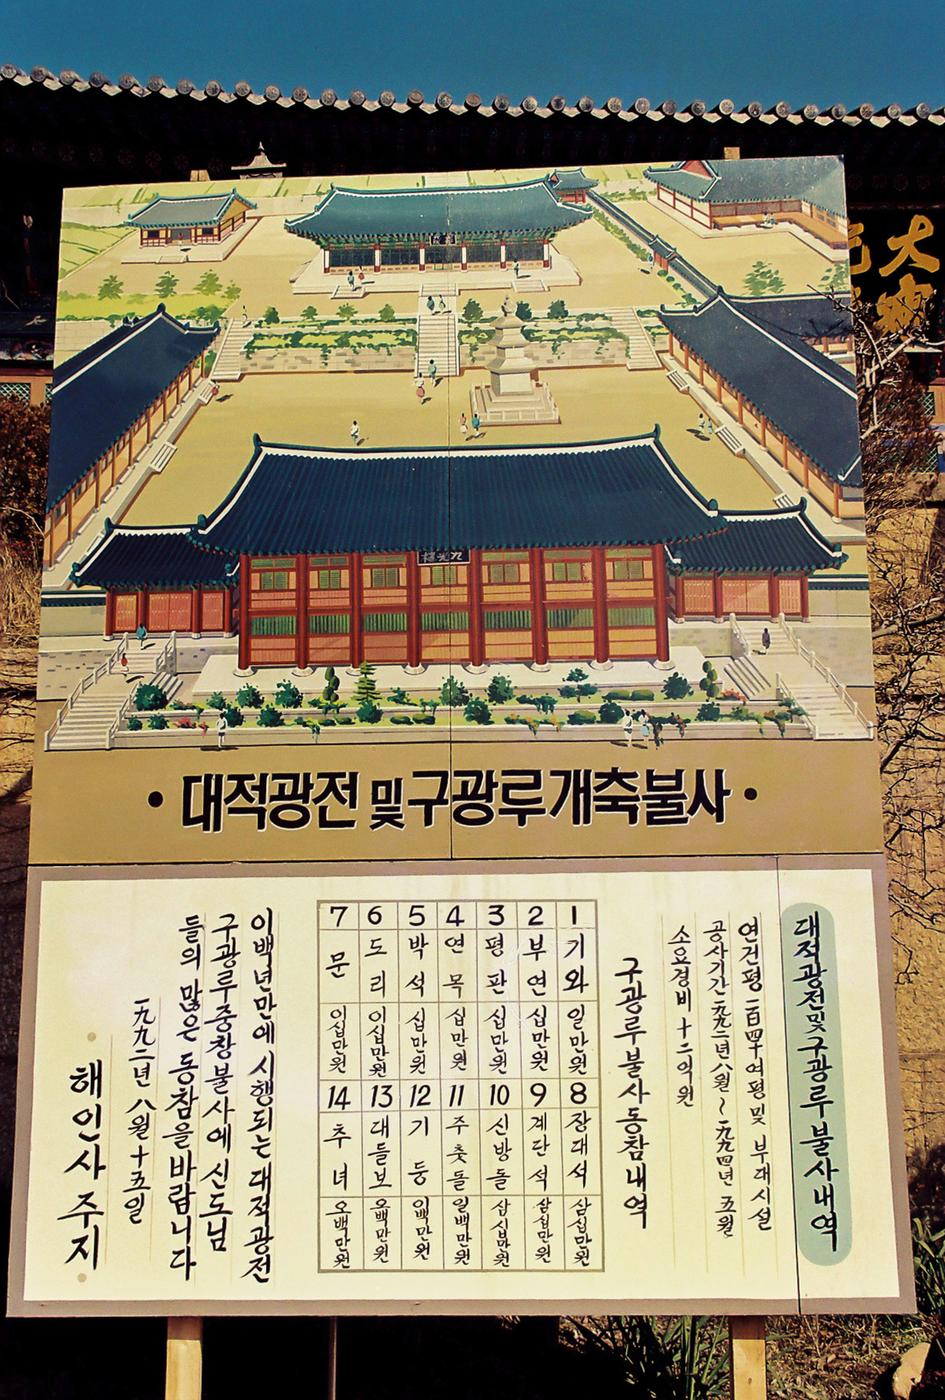 大
九光樓
• 대적광전 및 구광루개축불사 •
대적광전및구광루불사내역
연건평 二百四十여평 및 부대시설
공사기간 一九九二년 八월 ~ 一九九四년 五월
소요경비 十二억원
구광루불사동참내역
1 기와 일만원
2 부연 십만원
3 평판 십만원
4 연목 십만원
5 박석 십만원
6 도리 이십만원
7 문 이십만원
8 장대석 삼십만원
9 계단석 삼십만원
10 신방돌 삼십만원
11 주춧돌 일백만원
12 기둥 이백만원
13 대들보 오백만원
14 추녀 오백만원
이백년만에 시행되는 대적광전
구광루중창불사에 신도님
들의 많은 동참을바랍니다
一九九二년 八월 十五일
해인사주지